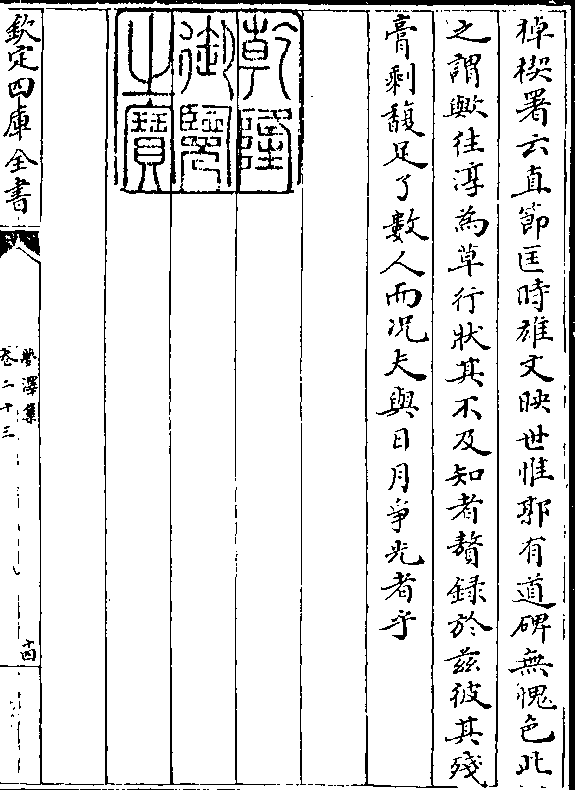 棹楔署云直節匡時雄文映世惟郭有道碑無愧色此
之謂歟往淳為草行狀其不及知者贅錄於茲彼其殘
膏剩馥足了數人而况夫與日月爭光者乎
乾隆御覽之寶
欽定四庫全書
夢澤集
卷二十三
十四